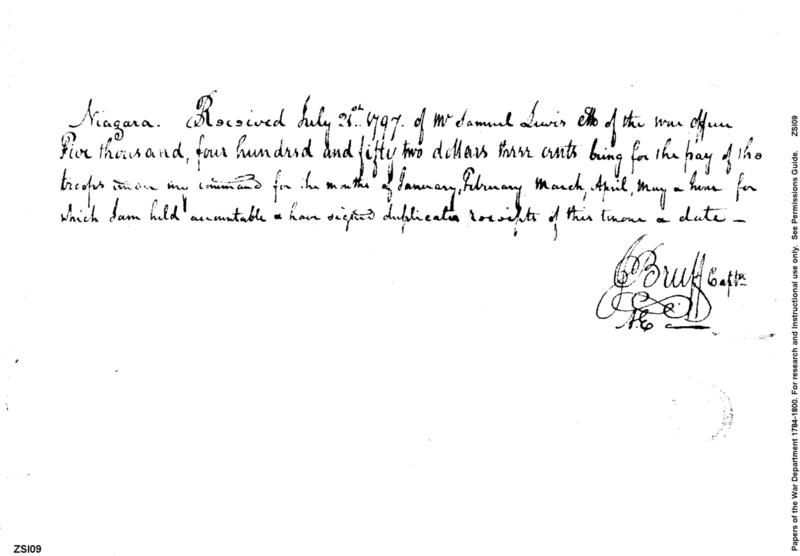 Niagara. Received July 21st. 1797. of Mr Samuel Lewis of the war office
Five thousand, four hundred and fifty two dollars three cents being for the pay of the
troops under my command for the months of January, February March, April, May & June for
which I am held accountable & have signed duplicate receipts of this tenor & date —
Bruff Captn
ZSI09
Papers of the War Department 1784-1800. For research and instructional use only. See Permissions Guide. ZSI09